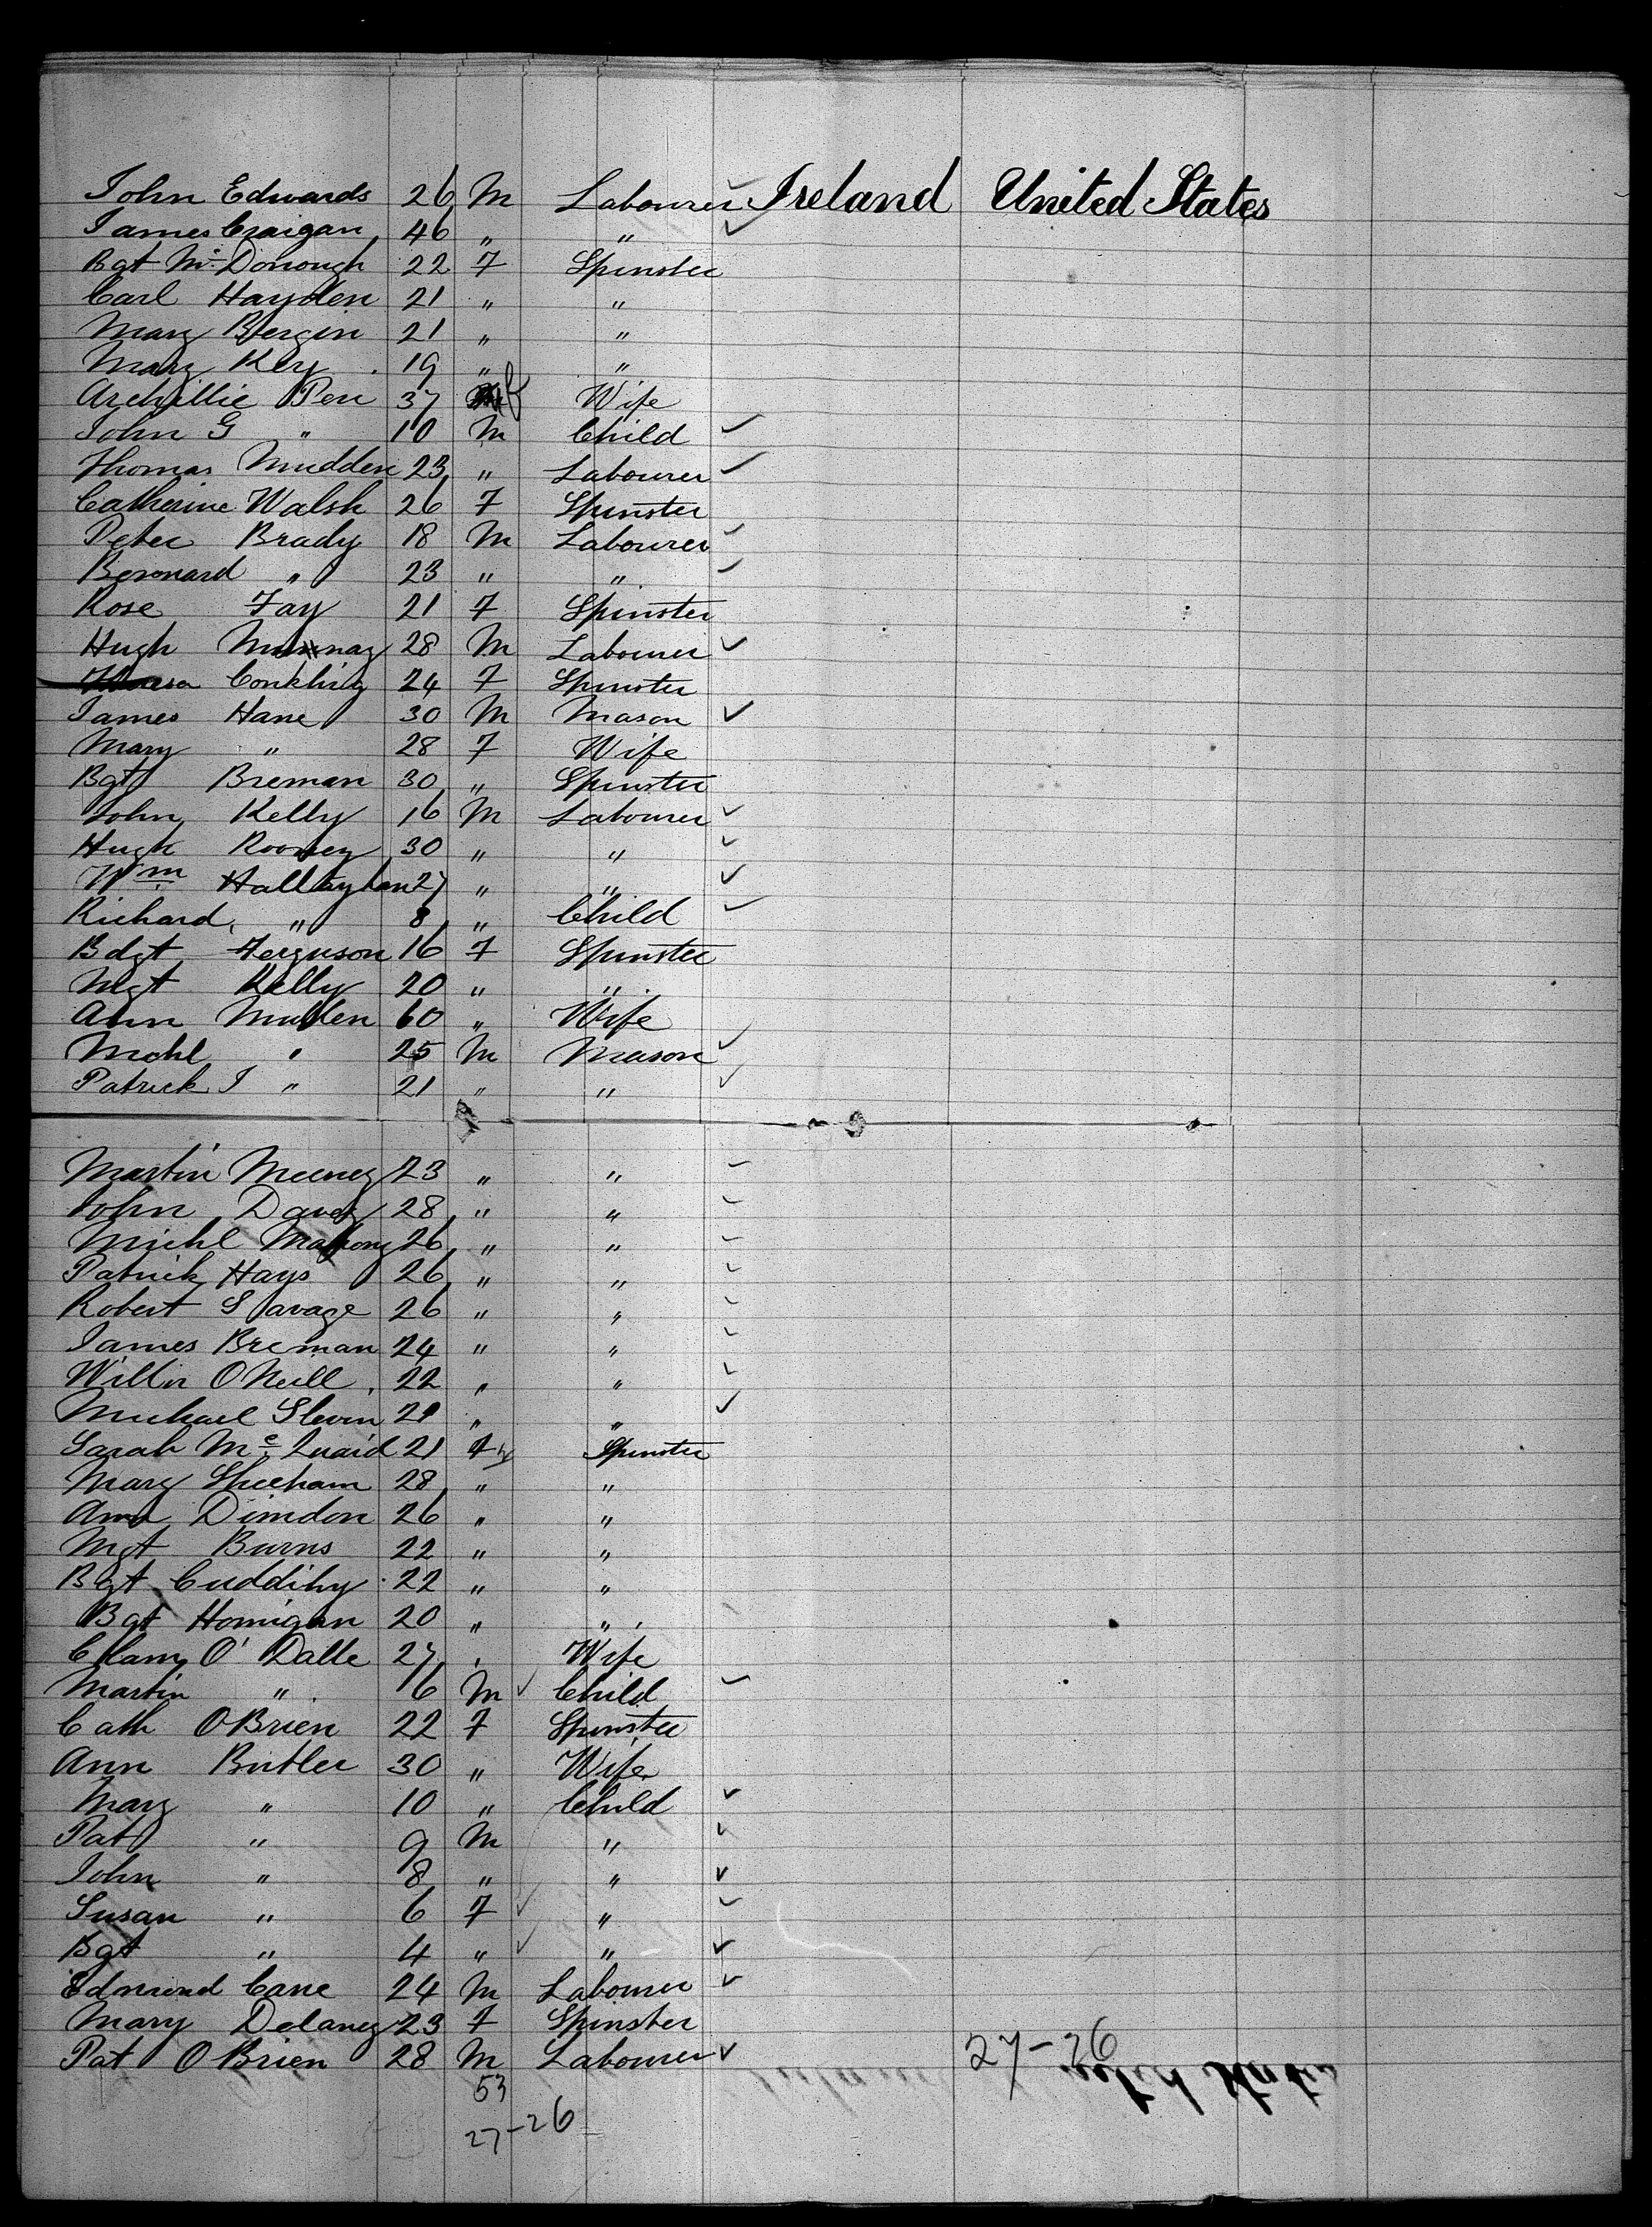 John Edwards 26 M Labourer Ireland United States
James Craigan 46 " "
Bgt McDonough 22 F Spinster
Carl Hayden 21 " "
Mary Bergin 21 " "
Mary Kly 19 " "
Archillie Peri 37 f Wife
John G " 10 M Child
Thomas Mudden 23 " Labourer
Catherine Walsh 26 F Spinster
Peter Brady 18 M Labourer
Bernard " 23 " "
Rose Fay 21 F Spinster
Hugh 28 M Labourer
Conkling 24 F Spinster
James Hane 30 M Mason
Mary " 28 F Wife
Bgt Breman 30 " Spinster
John Kelly 16 M Labourer
Hugh Rooney 30 " "
Wm 27 " "
Richard " 8 " Child
Bdgt Ferguson 16 F Spinster
Mgt Kelly 20 " "
Ann Mullen 60 " Wife
Mchl " 25 M Mason
Patrick J " 21 " "
Martin Meeney 23 " "
John Davey 28 " "
Michl Mahony 26 " "
Patrick Hays 26 " "
Robert Savage 26 " "
James Breman 24 " "
Willm O'Neill 22 " "
Michael Slevin 21 " "
Sarah McQuaid 21 F Spinster
Mary Sheeham 28 " "
Ann Dimdon 26 " "
Mgt Burns 22 " "
Bgt Cuddihy 22 " "
Bgt Hornigan 20 " "
O'Dalle 27 " Wife
Martin " 6 M Child
Cath OBrien 22 F Spinster
Ann Butler 30 " Wife
Mary " 10 " Child
Pat " 9 M "
John " 8 " "
Susan " 6 F "
Bgt " 4 " "
Edmund Cane 24 M Labourer
Mary Delaney 23 F Spinster
Pat O Brien 28 M Labourer 27-26
53
27-26